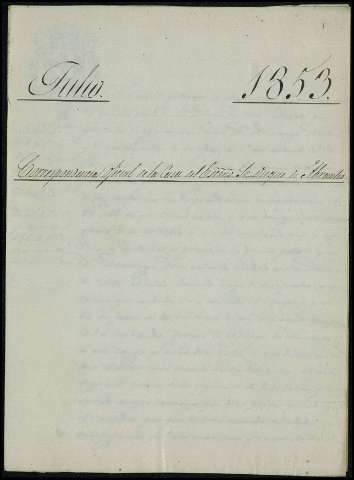 Julio. 1853.
Correspondencia oficial de la Casa del Excmo. Sr. Duque de Abrantes